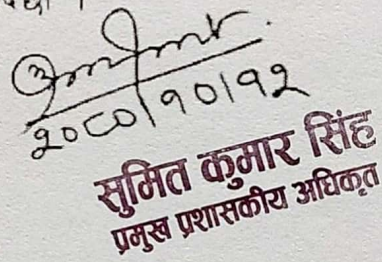 २०८०/१०/१२
सुमित कुमार सिंह
प्रमुख प्रशासकीय अधिकृत